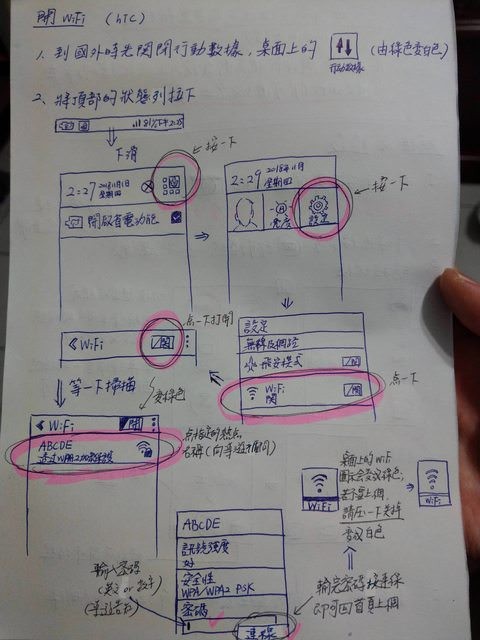 開 WiFi (hTC)
1. 到國外時先関閉行動數據, 桌面上的 (由綠色变白色)
行动數據
2. 將頂部的狀態列拉下
下滑
按一下
2:27 2018年11月1日
星期四
開啟省電功能
2:29 2018年11月
星期四
亮度 設定
按一下
點一下打開
< WiFi /開
設定
無線與網路
飛安模式 /関
WiFi /関
関
点一下
等一下掃描
变綠色
< WiFi /開
ABCDE
透过WPA2加密保護
点指定的熱点
名稱(向導遊詢问)
桌面上的 WiFi
圖示会变成綠色,
若不要上網,
請点一下
会变白色
WiFi
WiFi
ABCDE
訊號強度
好
安全性
WPA/WPA2 PSK
密碼
連線
輸入密碼
輸完密碼按連線
即可回首頁上網